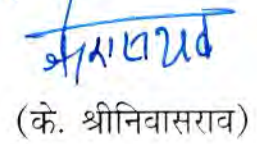 (के. श्रीनिवासराव)